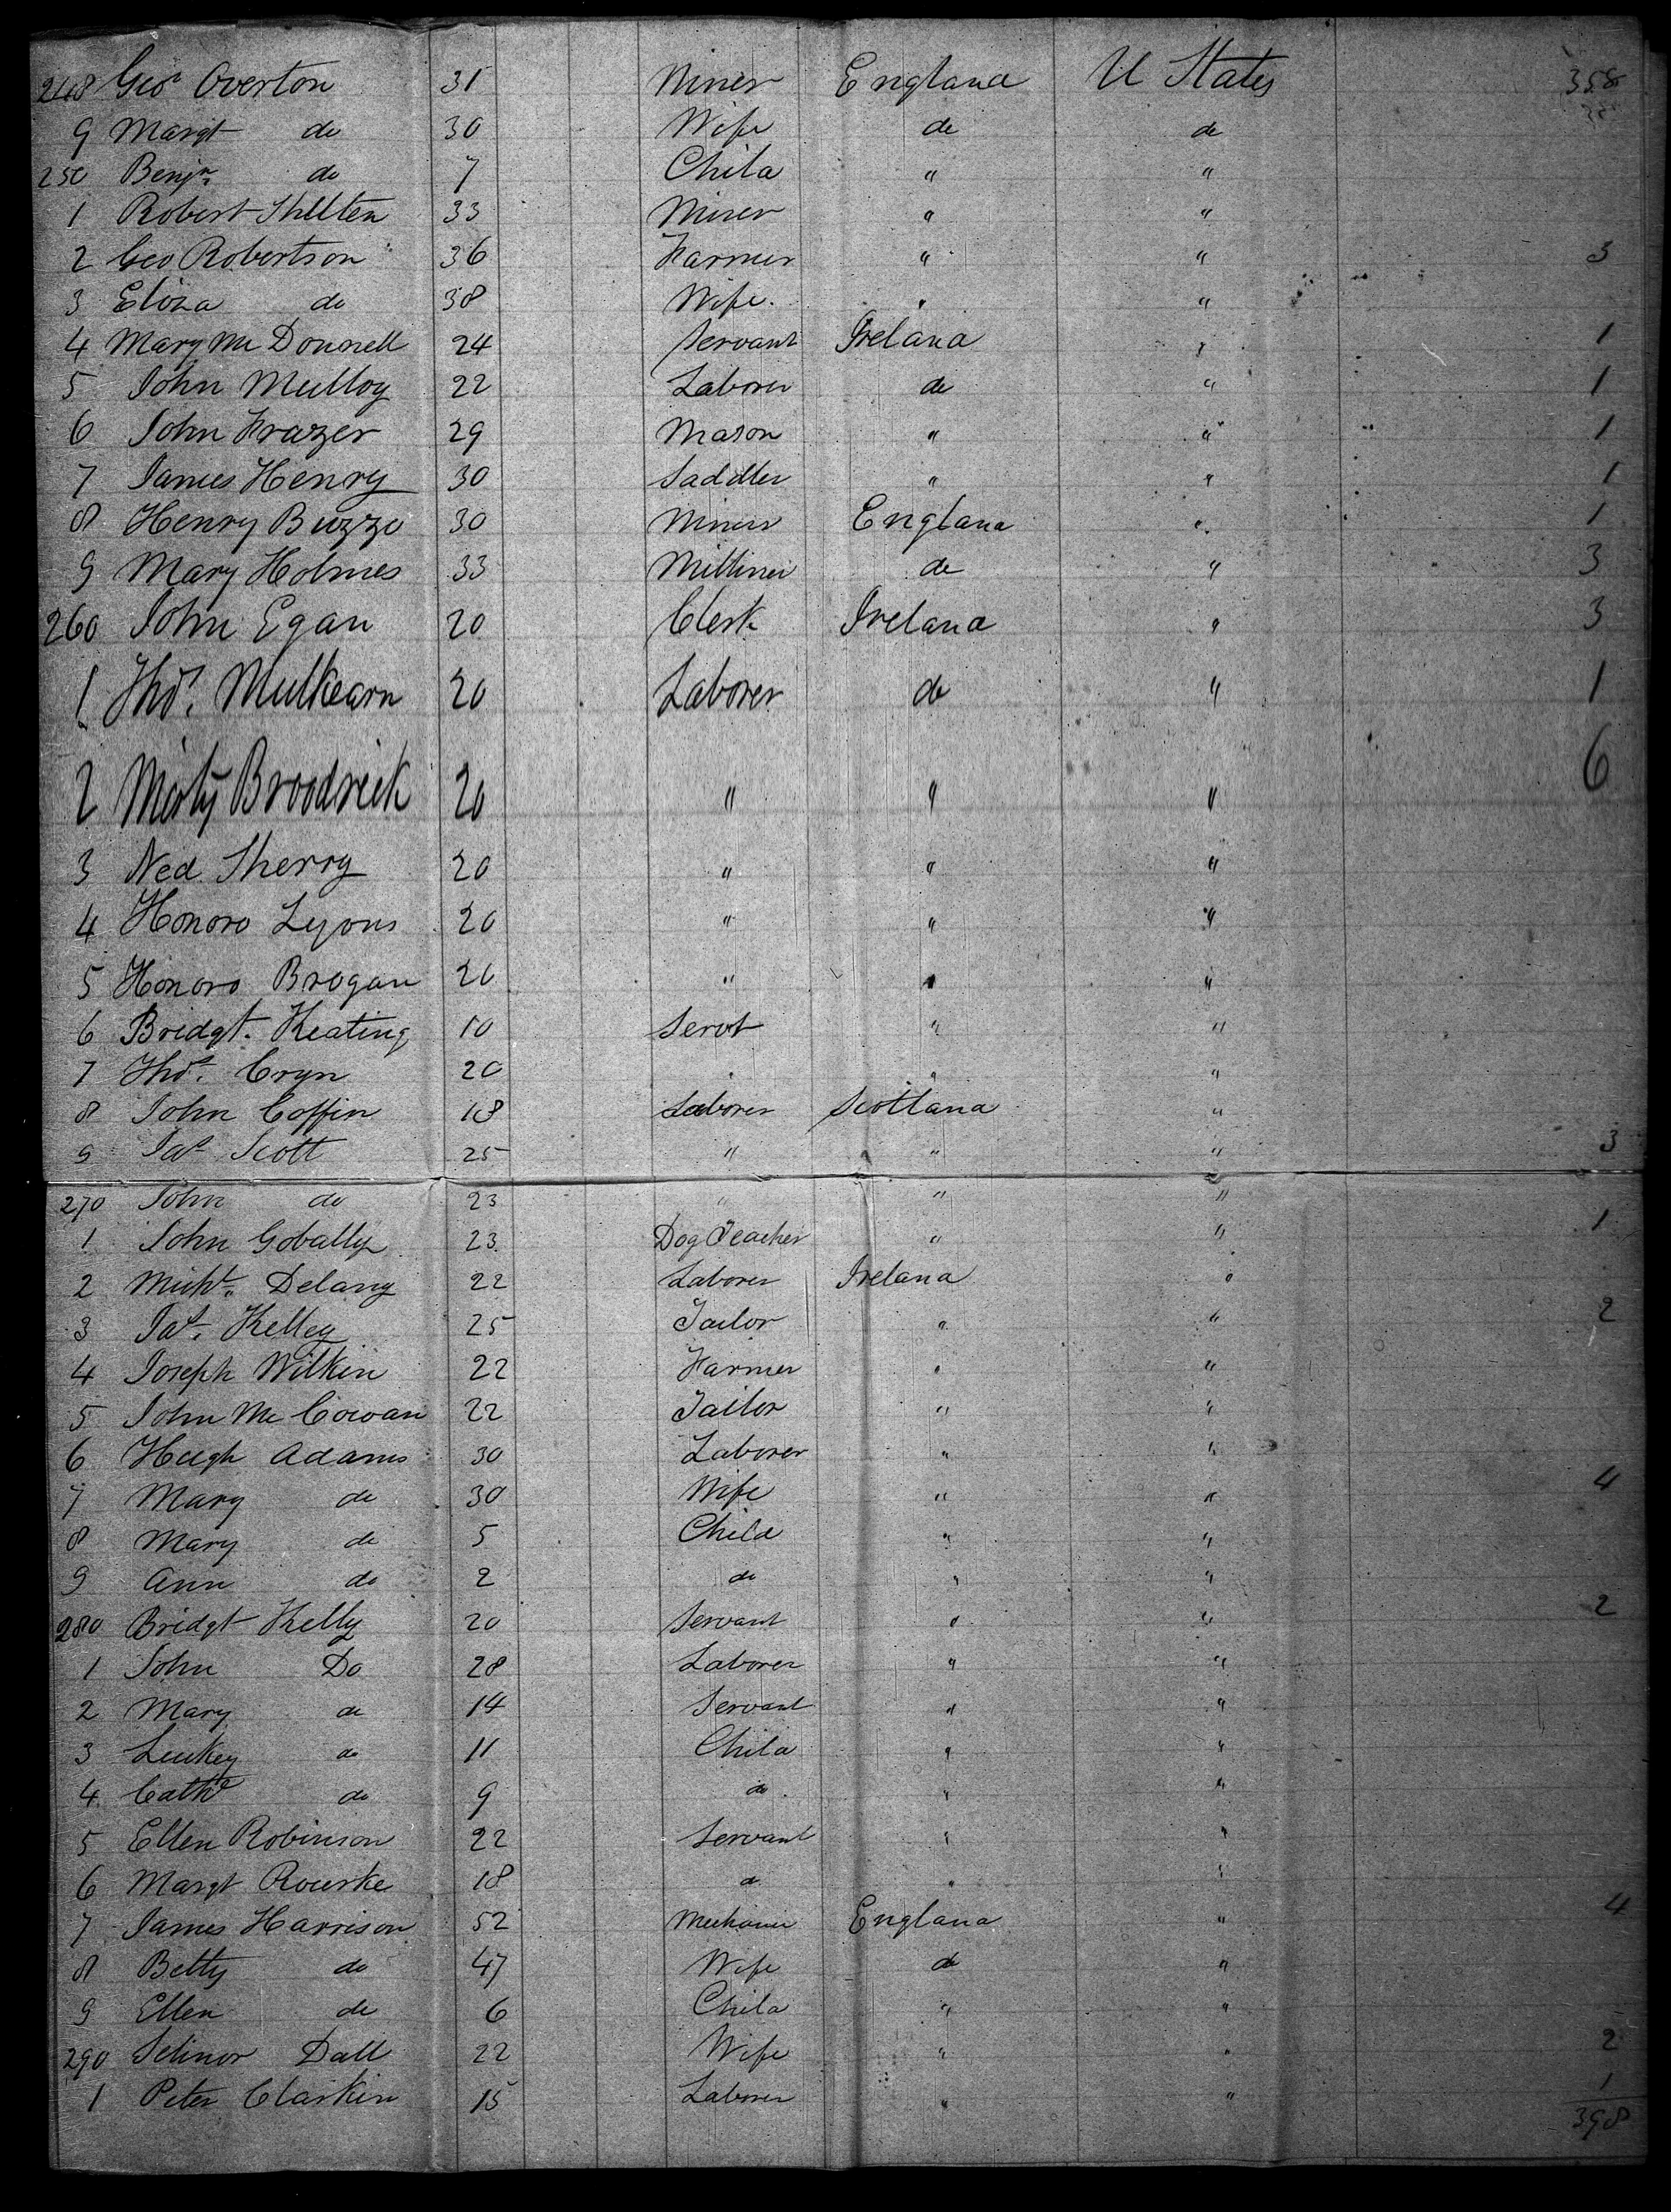 248 Geo. Overton 31 Miner England U States 358
9 Margt do 30 Wife do do
250 Benjn. do 7 Child " "
1 Robert Shelten 33 Miner " "
2 Geo Robertson 36 Farmer " " 3
3 Eliza do 38 Wife. " "
4 Mary Mc Donnell 24 Servant Ireland " 1
5 John Mulloy 22 Laborer do " 1
6 John Frazer 29 Mason " " 1
7 James Henry 30 Saddler " " 1
8 Henry Buzzo 30 Miner England " 1
9 Mary Holmes 33 Milliner do " 3
260 John Egan 20 Clerk Ireland " 3
1 Thos. Mulkearn 20 Laborer do " 1
2 Broodrick 20 " " " 6
3 Ned Sherry 20 " " "
4 Honoro Lyons 20 " " "
5 Honoro Brogan 20 " " "
6 Bridgt. Keating 10 Servt " "
7 Thos. Cryn 20 " " "
8 John Coffin 18 Laborer Scotland "
9 Jas Scott 25 " " " 3
270 John do 23 " " "
1 John Gobally 23 Dog Teacher " " 1
2 Michl. Delany 22 Laborer Ireland "
3 Jas. Kelley 25 Tailor " " 2
4 Joseph Wilkin 22 Farmer " "
5 John Mc Cowan 22 Tailor " "
6 Hugh Adams 30 Laborer " "
7 Mary do 30 Wife " " 4
8 Mary do 5 Child " "
9 Ann do 2 do " "
280 Bridgt Kelly 20 Servant " " 2
1 John Do 28 Laborer " "
2 Mary do 14 Servant " "
3 Leukey do 11 Child " "
4 Cathe do 9 do " "
5 Ellen Robinson 22 Servant " "
6 Margt Rourke 18 do " "
7 James Harrison 52 Mechanic England " 4
8 Betty do 47 Wife do "
9 Ellen do 6 Child " "
290 Selinor Dall 22 Wife " " 2
1 Peter Clarkin 15 Laborer " " 1
398